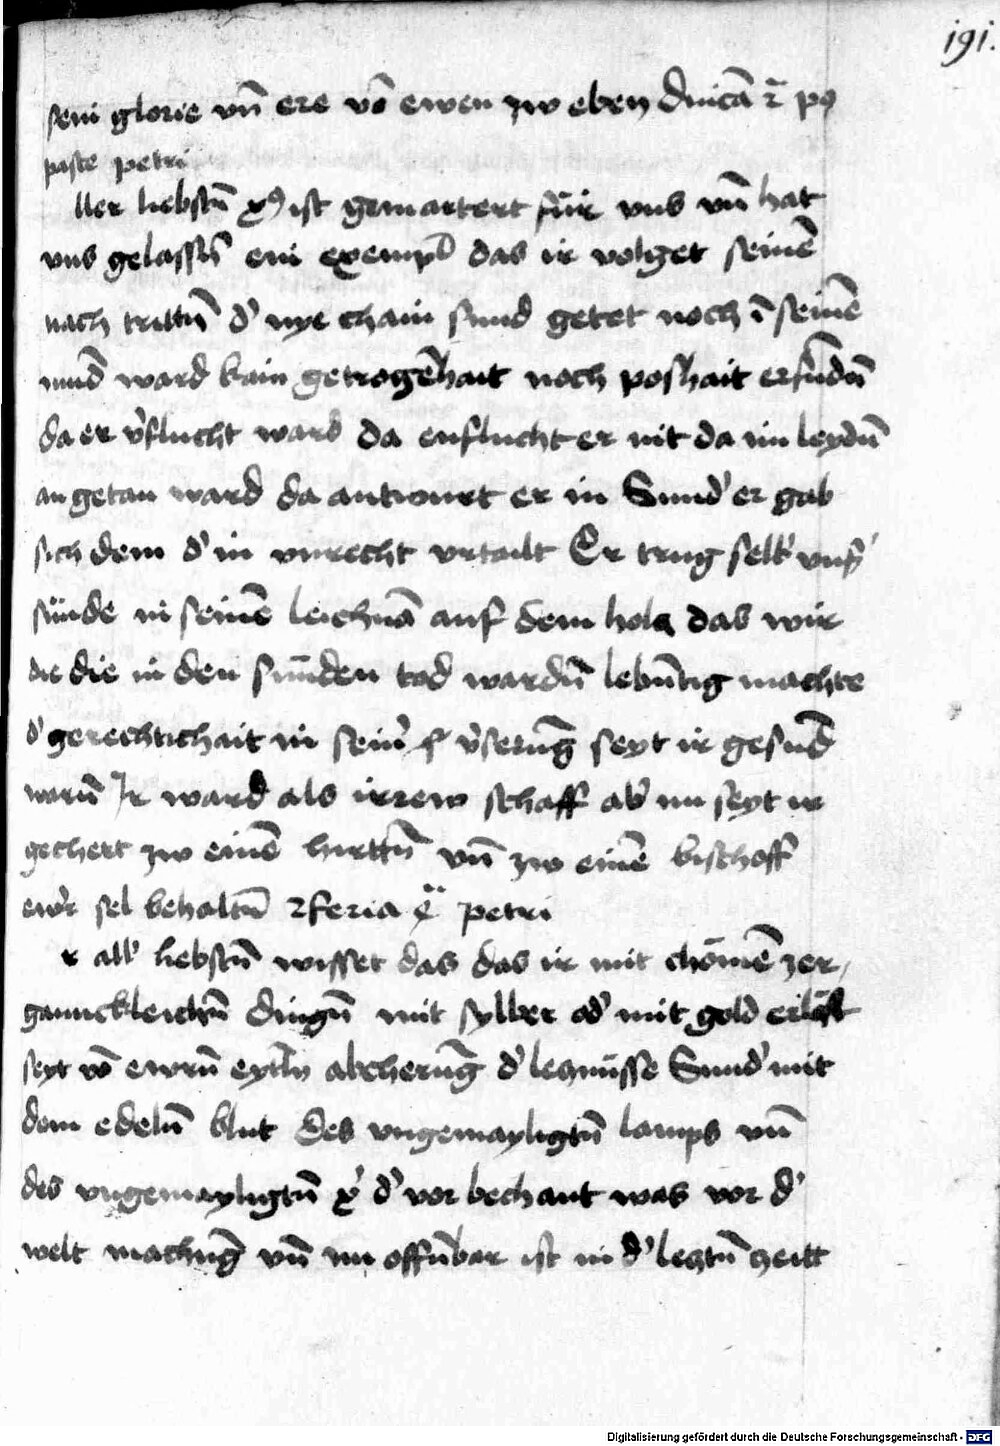 191.
seni glorie vn̄ ere vō ewen zw eben Dnīcā 2̄ po
paste petri
ller liebstn̄ xꝰ ist gemartert für vns vn̄ hat
vns gelassn̄ ein exempl das ir volget seinē
nach trittn̄ d' nye chain sund getet noch ī seinē
mund̄ ward kain getrogēhait noch poshait erfundn̄
da er v'flucht ward da enflucht er nit da im leydn̄
an getan ward da antwurt er in Sund' er gab
sich dem d' in vnrecht vrtailt Er trug selb' vns'
sünde in seinē leichnā auf dem holcz das wir
die die in den sünden tod wardn̄ lebn̄tig machte
d' gerechtichait in sein' v'serūg seyt ir gesūd
worn̄ Ir ward als irrew schaff ab' nu seyt ir
gechert zw einē hirttn̄ vn̄ zw einē bischoff
ew'r sel behaltn̄ 2 feria ẹ̈ petri
r all' liebstn̄ wisset das das ir mit chōmē zer
gannckleichn̄ dingn̄ mit sylber od' mit gold erlöst
seyt vō ewrn̄ eytln̄ abcherūg d' lecznüsse Sund' mit
dem edeln̄ blut des vngemayligtn̄ lamps vn̄
des vngemayligtn̄ x' d' vor bechant was vor d'
welt machūg vn̄ nu offn̄bar ist in d' lecztn̄ czeitt
Digitalisierung gefördert durch die Deutsche Forschungsgemeinschaft - DFG